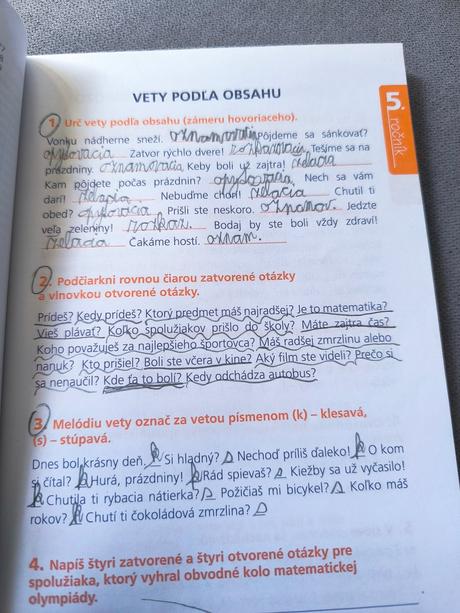 VETY PODĽA OBSAHU
5. ročník
1. Urč vety podľa obsahu (zámeru hovoriaceho).
Vonku nádherne sneží. oznamovacia Pôjdeme sa sánkovať?
opytovacia Zatvor rýchlo dvere! rozkazovacia Tešíme sa na
prázdniny. oznamovacia Keby boli už zajtra! želacia
Kam pôjdete počas prázdnin? opytovacia Nech sa vám
darí! želacia Nebuďme chorí! želacia Chutil ti
obed? opytovacia Prišli ste neskoro. oznamov. Jedzte
veľa zeleniny! rozkaz. Bodaj by ste boli vždy zdraví!
želacia Čakáme hostí. oznam.
2. Podčiarkni rovnou čiarou zatvorené otázky
a vlnovkou otvorené otázky.
Prídeš? Kedy prídeš? Ktorý predmet máš najradšej? Je to matematika?
Vieš plávať? Koľko spolužiakov prišlo do školy? Máte zajtra čas?
Koho považuješ za najlepšieho športovca? Máš radšej zmrzlinu alebo
nanuk? Kto prišiel? Boli ste včera v kine? Aký film ste videli? Prečo si
sa nenaučil? Kde ťa to bolí? Kedy odchádza autobus?
3. Melódiu vety označ za vetou písmenom (k) – klesavá,
(s) – stúpavá.
Dnes bol krásny deň. k Si hladný? s Nechoď príliš ďaleko! k O kom
si čítal? k Hurá, prázdniny! k Rád spievaš? s Kiežby sa už vyčasilo!
k Chutila ti rybacia nátierka? s Požičiaš mi bicykel? s Koľko máš
rokov? k Chutí ti čokoládová zmrzlina? s
4. Napíš štyri zatvorené a štyri otvorené otázky pre
spolužiaka, ktorý vyhral obvodné kolo matematickej
olympiády.